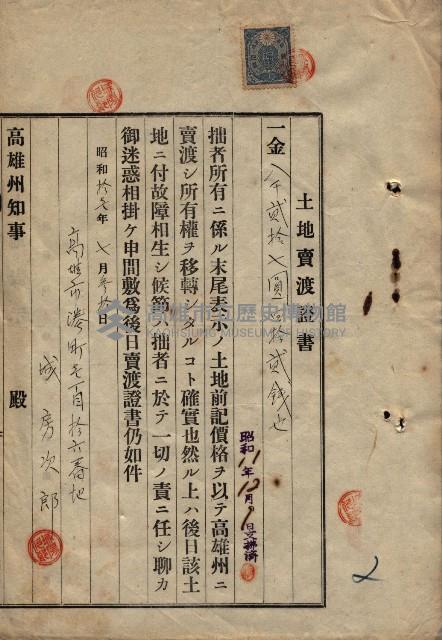 土地賣渡證書
一金八千貳拾七圓
拾貳錢也
拙者所有ニ係ル末尾表示ノ土地前記價格ヲ以テ高雄州ニ
賣渡シ所有權ヲ移轉シタルコト確實也然ル上ハ後日該土
地ニ付故障相生シ候節ハ拙者ニ於テ一切ノ責ニ任シ聊カ
御迷惑相掛ケ申間敷為後日賣渡證書仍如件
昭和拾 年 七月參拾 日
高雄市港町 百拾六番地
城房次郎
高雄州知事 殿
昭和11年12月 日 濟
高雄市立歷史博物館
KAOHSIUNG MUSEUM OF HISTORY
2